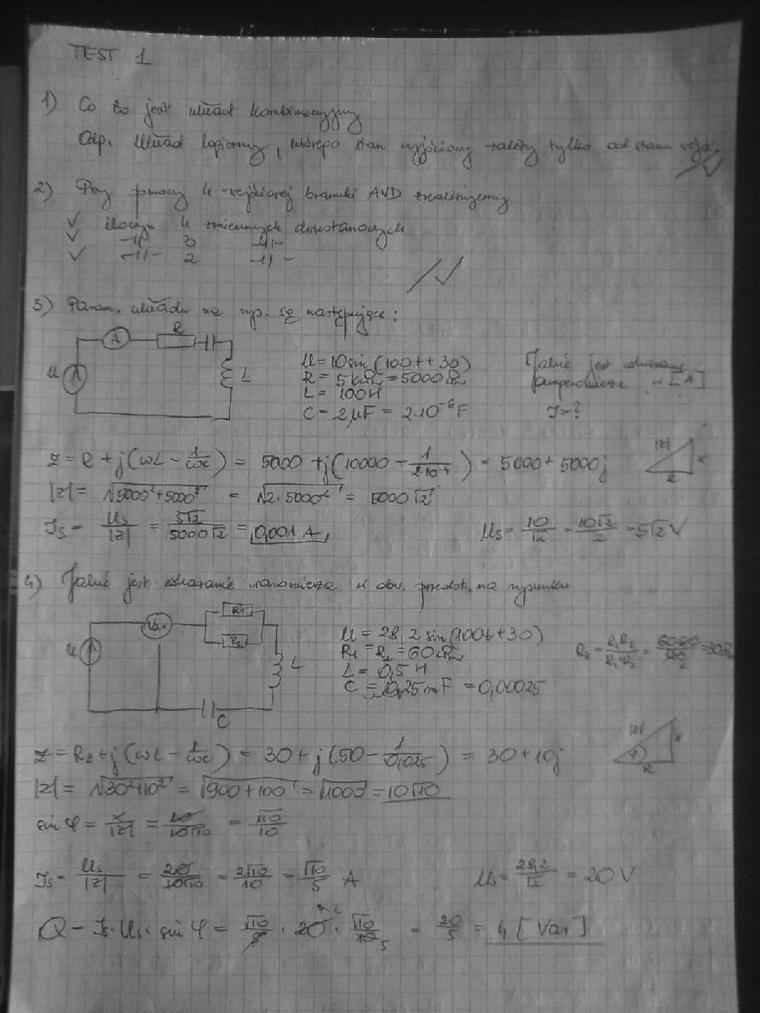 TEST 1
1) Co to jest układ kombinacyjny
Odp. Układ logiczny, którego stan wyjściowy zależy tylko od stanu wejść.
2) Przy pomocy 4-wejściowej bramki AND zrealizujemy
✓ iloczyn 4 zmiennych dwustanowych
✓ -11- 3 -11-
✓ -11- 2 -11-
3) Param. układu na rys. są następujące:
A R
U L
U = 10 sin(100t+30)
R = 5kΩ = 5000Ω
L = 100H
C = 2μF = 2·10⁻⁶F
Jakie jest wskazanie
amperomierza w [A]
I = ?
Z = R + j(ωL - 1/ωC) = 5000 + j(10000 - 1/2·10⁻⁴) = 5000 + 5000j
|Z| x R
|Z| = √5000²+5000² = √2·5000² = 5000√2
Is = Us/|Z| = 5√2/5000√2 = 0,001 A
Us = 10/√2 = 10√2/2 = 5√2 V
4) Jakie jest wskazanie waromierza w obw. przedst. na rysunku
U Var R1 R2 L C
U = 28,2 sin(100t+30)
R1 = R2 = 60Ω
L = 0,5H
C = 0,25mF = 0,00025
Rz = R1R2/R1+R2 = 60·60/120 = 30Ω
Z = Rz + j(ωL - 1/ωC) = 30 + j(50 - 1/0,025) = 30 + 10j
|Z| φ x R
|Z| = √30²+10² = √900+100 = √1000 = 10√10
sin φ = x/|Z| = 10/10√10 = √10/10
Is = Us/|Z| = 20/10√10 = 2√10/10 = √10/5 A
Us = 28,2/√2 = 20 V
Q = Is·Us·sin φ = √10/5 · 20 · √10/10 = 20/5 = 4 [Var]